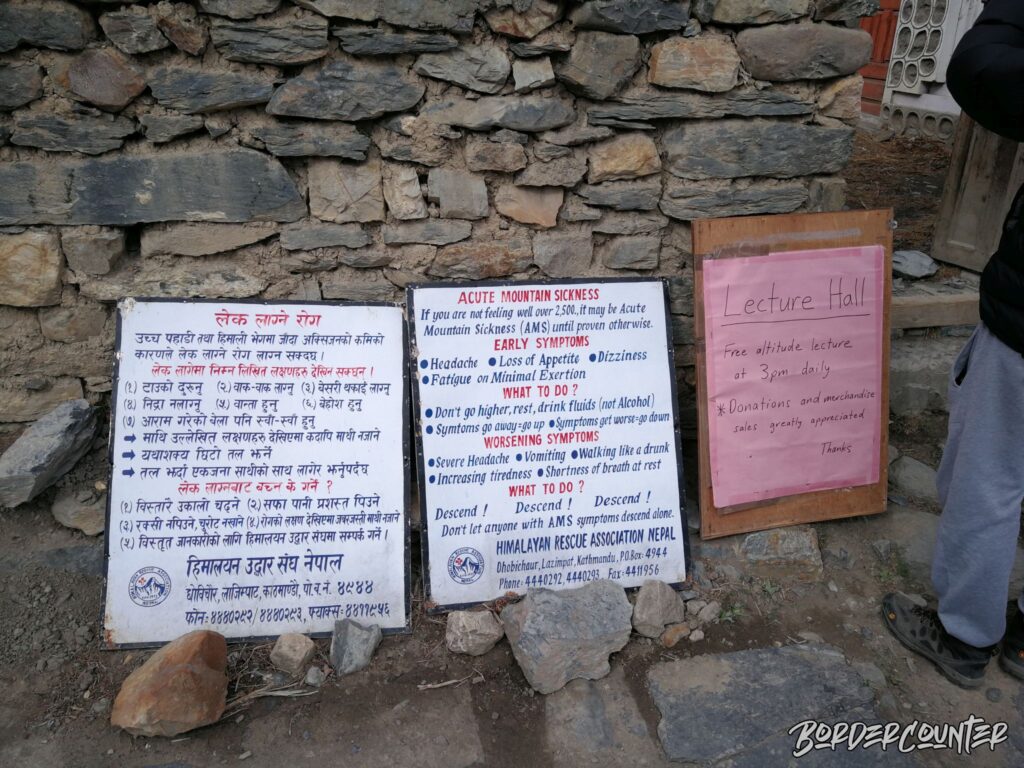 लेक लाग्ने रोग
उच्च पहाडी तथा हिमाली भेगमा जाँदा अक्सिजनको कमिको
कारणले लेक लाग्ने रोग लाग्न सक्दछ ।
लेक लागेमा निम्न लिखित लक्षणहरु देखिन सक्दछन ।
(१) टाउको दुख्नु (२) वाक-वाक लाग्नु (३) बेसरी थकाई लाग्नु
(४) निद्रा नलाग्नु (५) वान्ता हुनु (६) बेहोश हुनु
(७) आराम गरेको बेला पनि स्वाँ-स्वाँ हुनु
➡ माथि उल्लेखित लक्षणहरु देखिएमा कदापि माथी नजाने
➡ यथाशक्य छिटो तल झर्ने
➡ तल झर्दा एकजना साथीको साथ लागेर झर्नुपर्दछ
लेक लाग्नबाट बच्न के गर्ने ?
(१) विस्तारै उकालो चढ्ने (२) सफा पानी प्रशस्त पिउने
(३) रक्सी नपिउने, चुरोट नखाने (४) रोगको लक्षण देखिएमा जबरजस्ती माथी नजाने
(५) विस्तृत जानकारीको लागि हिमालयन उद्धार संघमा सम्पर्क गर्ने ।
हिमालयन उद्धार संघ नेपाल
धोविचौर, लाजिम्पाट, काठमाण्डौ, पो.ब.नं. ४९४४
फोन: ४४४०२९२/४४४०२९३, फ्याक्स: ४४११९५६
ACUTE MOUNTAIN SICKNESS
If you are not feeling well over 2,500., it may be Acute
Mountain Sickness (AMS) until proven otherwise.
EARLY SYMPTOMS
●Headache ●Loss of Appetite ●Dizziness
●Fatigue on Minimal Exertion
WHAT TO DO ?
●Don't go higher, rest, drink fluids (not Alcohol)
●Symtoms go away-go up ●Symptoms get worse-go down
WORSENING SYMPTOMS
●Severe Headache ●Vomiting ●Walking like a drunk
●Increasing tiredness ●Shortness of breath at rest
WHAT TO DO ?
Descend ! Descend ! Descend !
Don't let anyone with AMS symptoms descend alone.
HIMALAYAN RESCUE ASSOCIATION NEPAL
Dhobichaur, Lazimpat, Kathmandu, P.O.Box: 4944
Phone: 4440292, 4440293, Fax:4411956
Lecture Hall
Free altitude lecture
at 3pm daily
*Donations and merchandise
sales greatly appreciated
Thanks
BORDERCOUNTER